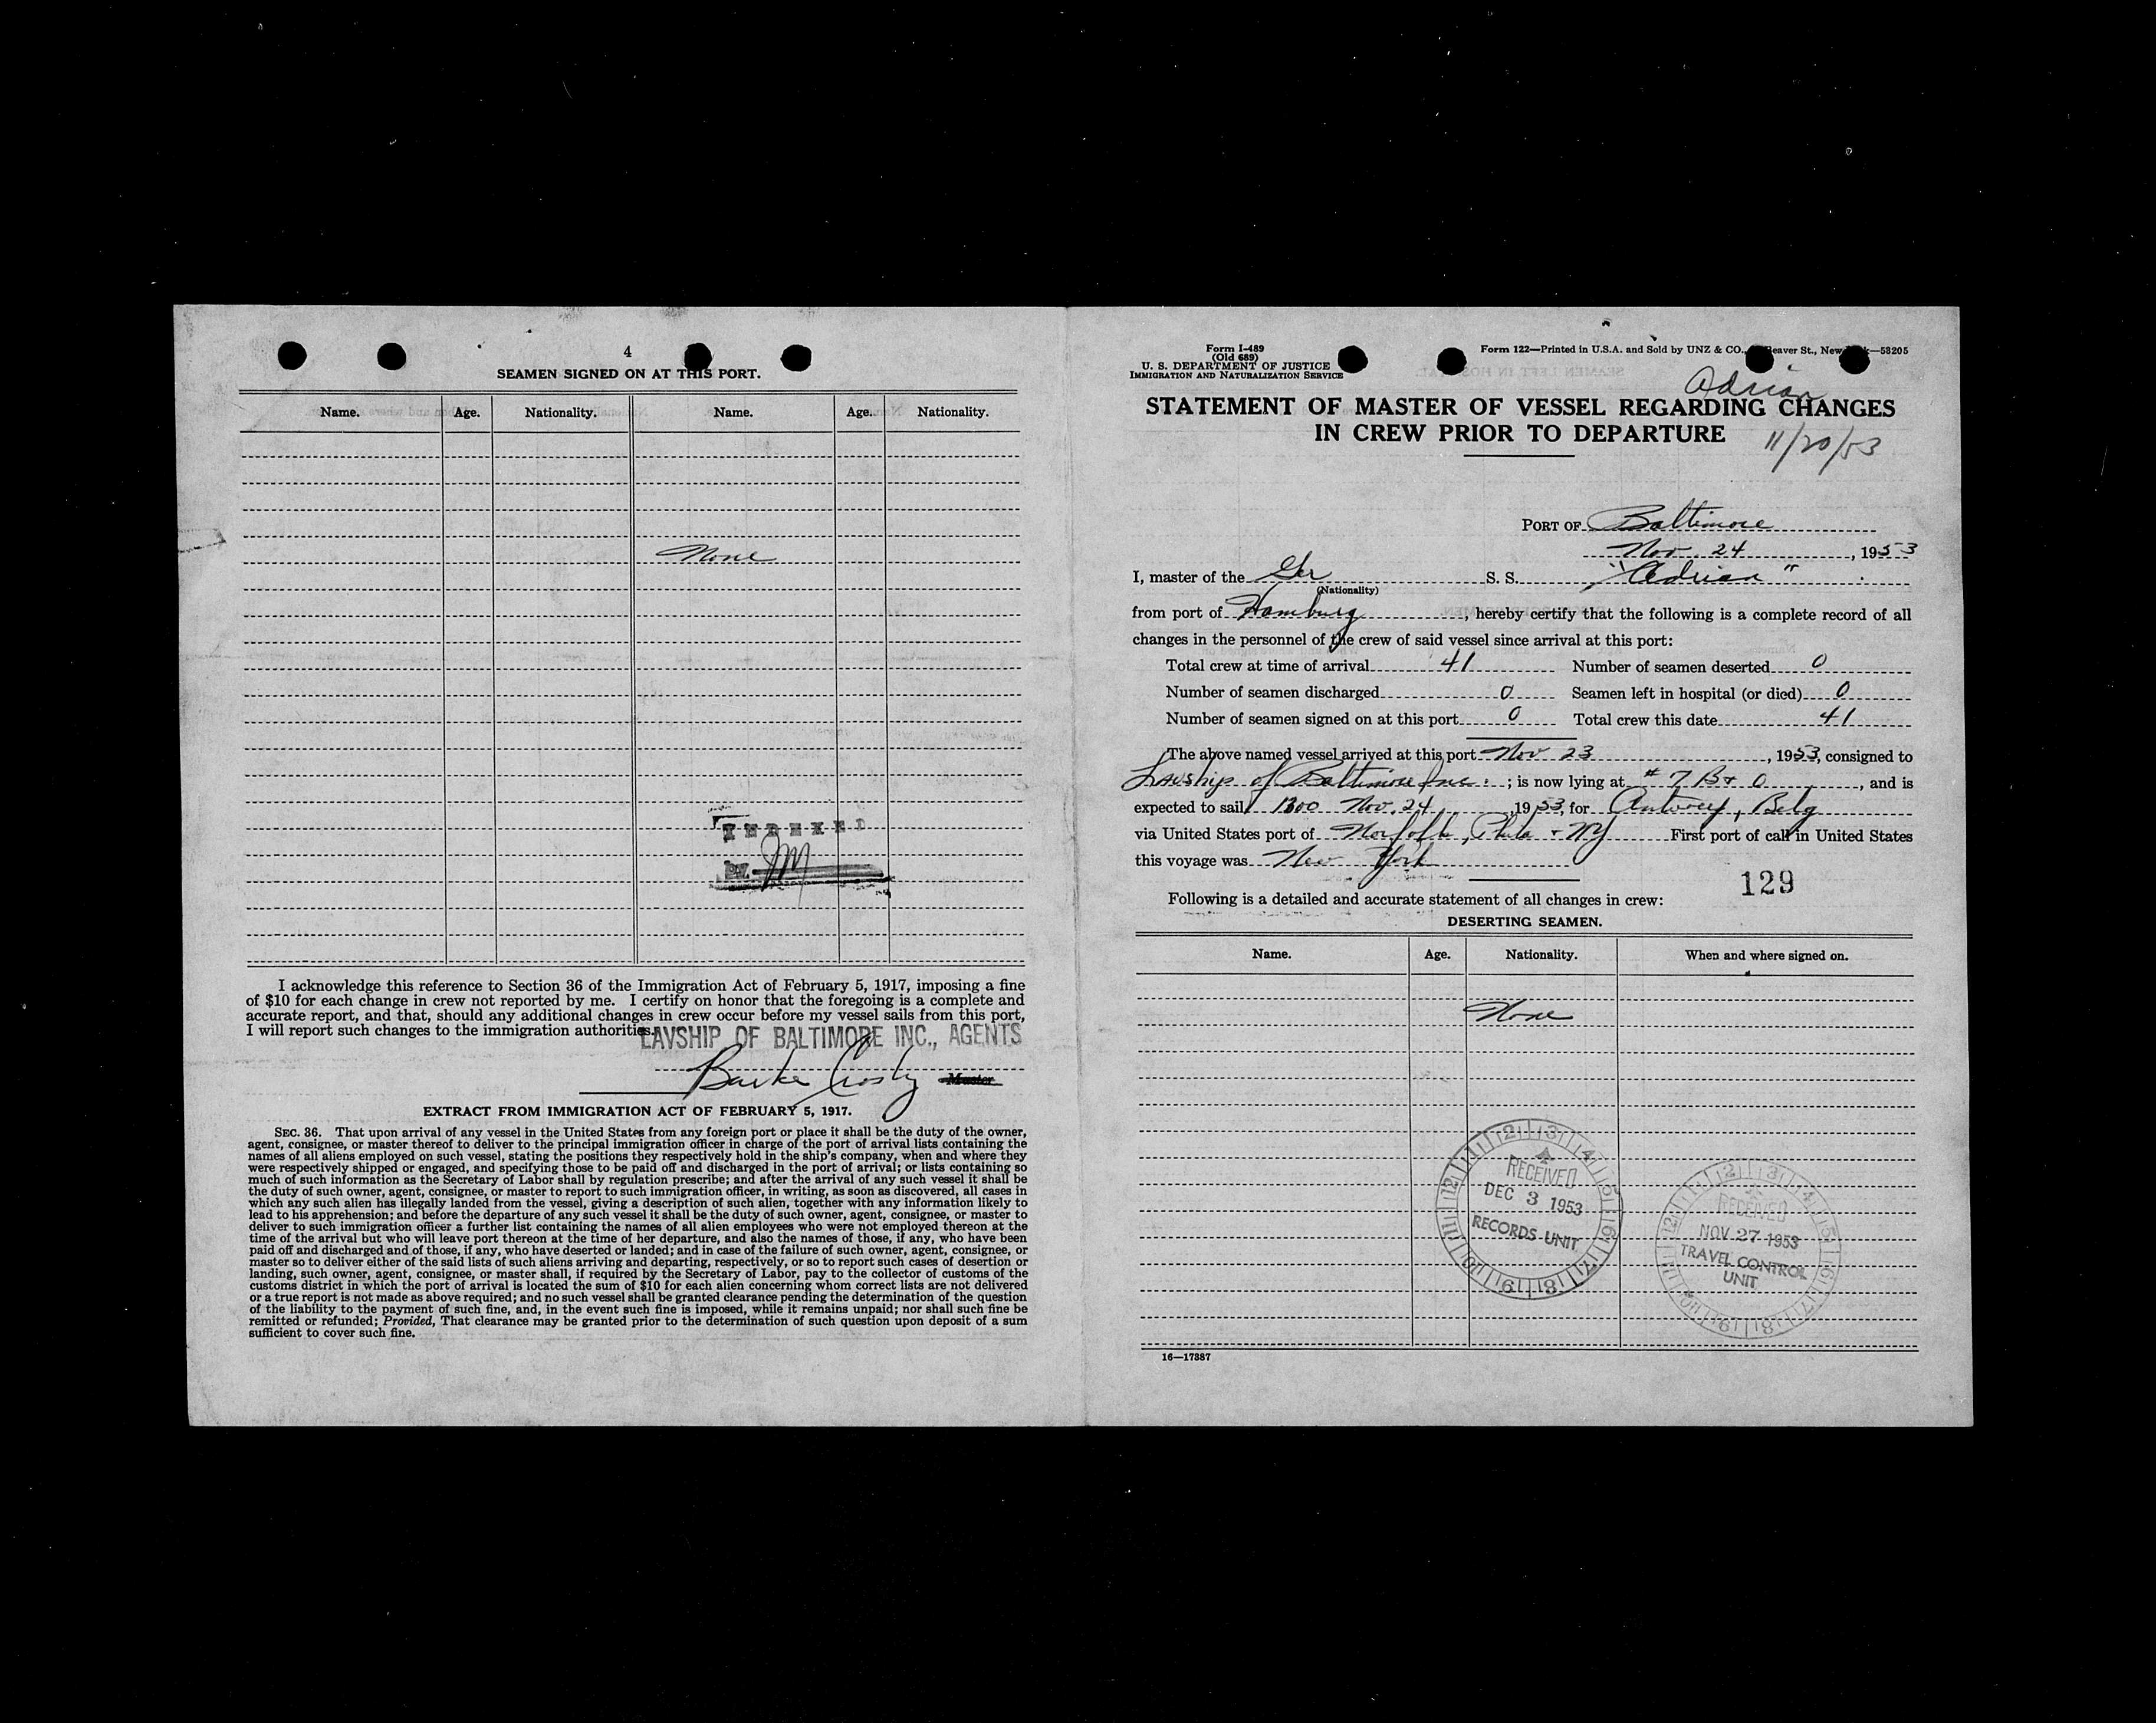 4
SEAMEN SIGNED ON AT THIS PORT.
Name. Age. Nationality. Name. Age. Nationality.
None
INDEXED
BY JM
I acknowledge this reference to Section 36 of the Immigration Act of February 5, 1917, imposing a fine
of $10 for each change in crew not reported by me. I certify on honor that the foregoing is a complete and
accurate report, and that, should any additional changes in crew occur before my vessel sails from this port,
I will report such changes to the immigration authorities.
LAVSHIP OF BALTIMORE INC., AGENTS
Burke Crosby Master
EXTRACT FROM IMMIGRATION ACT OF FEBRUARY 5, 1917.
SEC. 36. That upon arrival of any vessel in the United States from any foreign port or place it shall be the duty of the owner,
agent, consignee, or master thereof to deliver to the principal immigration officer in charge of the port of arrival lists containing the
names of all aliens employed on such vessel, stating the positions they respectively hold in the ship's company, when and where they
were respectively shipped or engaged, and specifying those to be paid off and discharged in the port of arrival; or lists containing so
much of such information as the Secretary of Labor shall by regulation prescribe; and after the arrival of any such vessel it shall be
the duty of such owner, agent, consignee, or master to report to such immigration officer, in writing, as soon as discovered, all cases in
which any such alien has illegally landed from the vessel, giving a description of such alien, together with any information likely to
lead to his apprehension; and before the departure of any such vessel it shall be the duty of such owner, agent, consignee, or master to
deliver to such immigration officer a further list containing the names of all alien employees who were not employed thereon at the
time of the arrival but who will leave port thereon at the time of her departure, and also the names of those, if any, who have been
paid off and discharged and of those, if any, who have deserted or landed; and in case of the failure of such owner, agent, consignee, or
master so to deliver either of the said lists of such aliens arriving and departing, respectively, or so to report such cases of desertion or
landing, such owner, agent, consignee, or master shall, if required by the Secretary of Labor, pay to the collector of customs of the
customs district in which the port of arrival is located the sum of $10 for each alien concerning whom correct lists are not delivered
or a true report is not made as above required; and no such vessel shall be granted clearance pending the determination of the question
of the liability to the payment of such fine, and, in the event such fine is imposed, while it remains unpaid; nor shall such fine be
remitted or refunded; Provided, That clearance may be granted prior to the determination of such question upon deposit of a sum
sufficient to cover such fine.
Form I-489
(Old 689)
U. S. DEPARTMENT OF JUSTICE
IMMIGRATION AND NATURALIZATION SERVICE
Form 122—Printed in U.S.A. and Sold by UNZ & CO., Beaver St., New —53205
Adrian
STATEMENT OF MASTER OF VESSEL REGARDING CHANGES
IN CREW PRIOR TO DEPARTURE
11/20/53
PORT OF Baltimore
Nov. 24, 1953
I, master of the Ger S. S. "Adrian"
(Nationality)
from port of Hamburg, hereby certify that the following is a complete record of all
changes in the personnel of the crew of said vessel since arrival at this port:
Total crew at time of arrival 41 Number of seamen deserted 0
Number of seamen discharged 0 Seamen left in hospital (or died) 0
Number of seamen signed on at this port 0 Total crew this date 41
The above named vessel arrived at this port Nov 23, 1953, consigned to
Lavship of Baltimore Inc.; is now lying at #7 B+O, and is
expected to sail 1300 Nov. 24, 1953, for Antwerp, Belg
via United States port of Norfolk, Phila + NY First port of call in United States
this voyage was New York
129
Following is a detailed and accurate statement of all changes in crew:
DESERTING SEAMEN.
Name. Age. Nationality. When and where signed on.
None
RECEIVED
DEC 3 1953
RECORDS UNIT
RECEIVED
NOV 27 1953
TRAVEL CONTROL
UNIT
16—17387